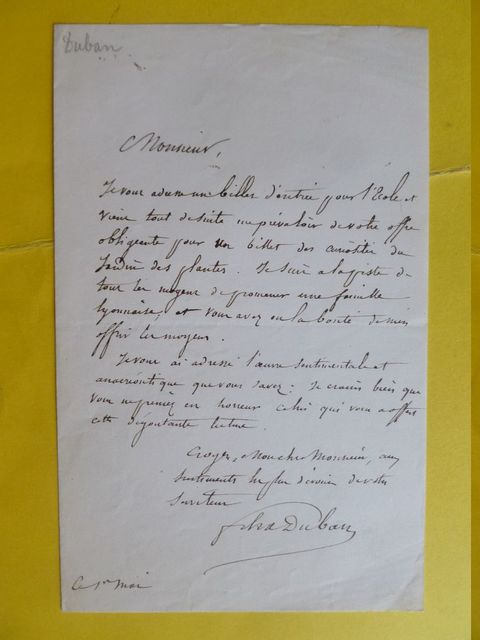 Duban
Monsieur,
Je vous adresse un billet d'entrée pour l'Ecole et
viens tout de suite me prévaloir de votre offre
obligeante pour un billet des curiosités du
Jardin des plantes. Je suis à la piste de
tous les moyens de promener une famille
lyonnaise, et vous avez eu la bonté de m'en
offrir les moyens.
Je vous ai adressé l'œuvre sentimentale et
que vous savez : Je crains bien que
vous ne preniez en horreur celui qui vous a offert
cette dégoutante lecture.
Croyez, Mon cher Monsieur, aux
sentiments les plus dévoués de votre
serviteur
Félix Duban
Ce 1er mai